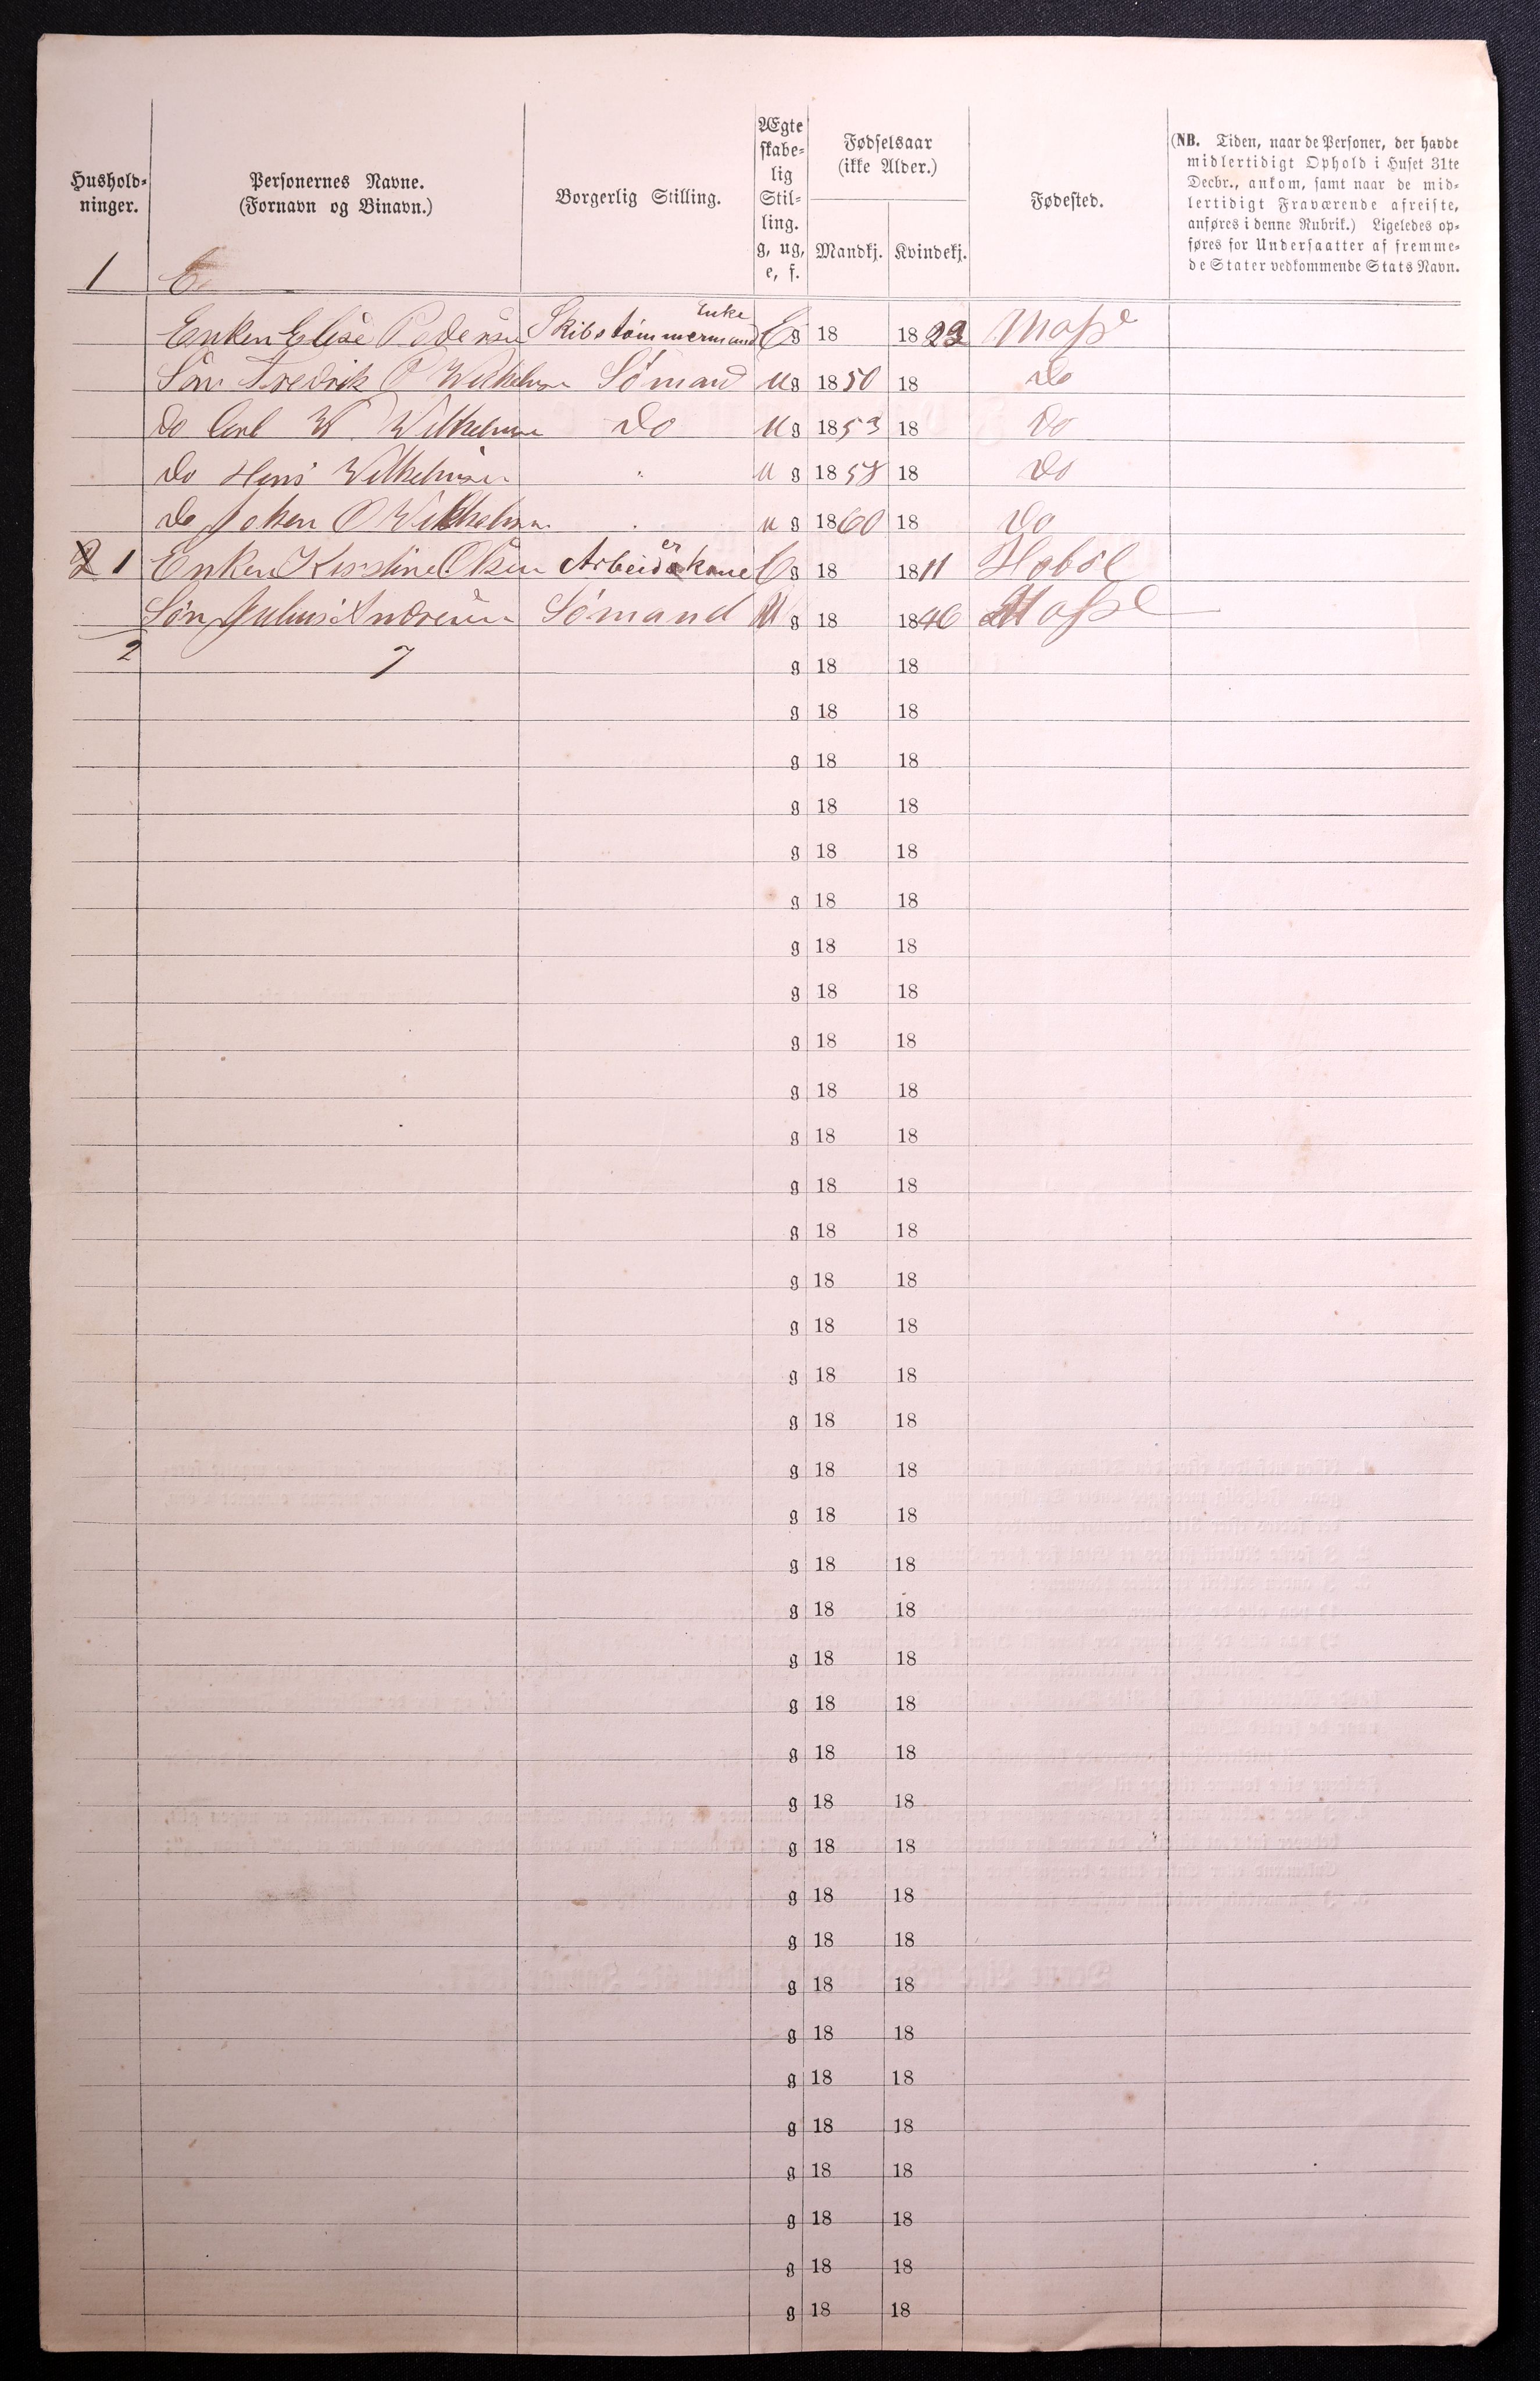 Hushold-
ninger.
Personernes Navne.
(Fornavn og Binavn.)
Borgerlig Stilling.
Ægte
skabe-
lig
Stil-
ling.
g, ug,
e, f.
Fødselsaar
(ikke Alder.)
Mandkj.
Kvindekj.
Fødested.
(NB. Tiden, naar de Personer, der havde
midlertidigt Ophold i Huset 31te
Decbr., ankom, samt naar de mid-
lertidigt Fraværende afreiste,
anføres i denne Rubrik.) Ligeledes op-
føres for Undersaatter af fremme-
de Stater vedkommende Stats Navn.
1 E
Enken Elise Pedersen Skibstømmermand Enke E g 18 1823 Mosse
Søn Fredrik O Wilhelmsen Sømand U g 1850 18 do
do Carl W. Wilhelmsen do U g 1853 18 do
do Hans Wilhelmsen " U g 1858 18 do
do Johan O Wilhelmsen " U g 1860 18 do
2 1 Enken Kirstine Olsen Arbeiderkone E g 18 1811 Hobøl
Søn Julius Andresen Sømand U g 18 1846 Mosse
2 7 g 18 18
g 18 18
g 18 18
g 18 18
g 18 18
g 18 18
g 18 18
g 18 18
g 18 18
g 18 18
g 18 18
g 18 18
g 18 18
g 18 18
g 18 18
g 18 18
g 18 18
g 18 18
g 18 18
g 18 18
g 18 18
g 18 18
g 18 18
g 18 18
g 18 18
g 18 18
g 18 18
g 18 18
g 18 18
g 18 18
g 18 18
g 18 18
g 18 18
g 18 18
g 18 18
g 18 18